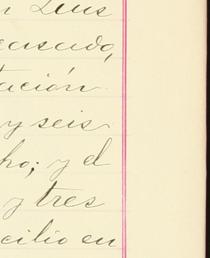 n Luis
ecasado,
tación
y seis
ho; y el
y tres
cilio en